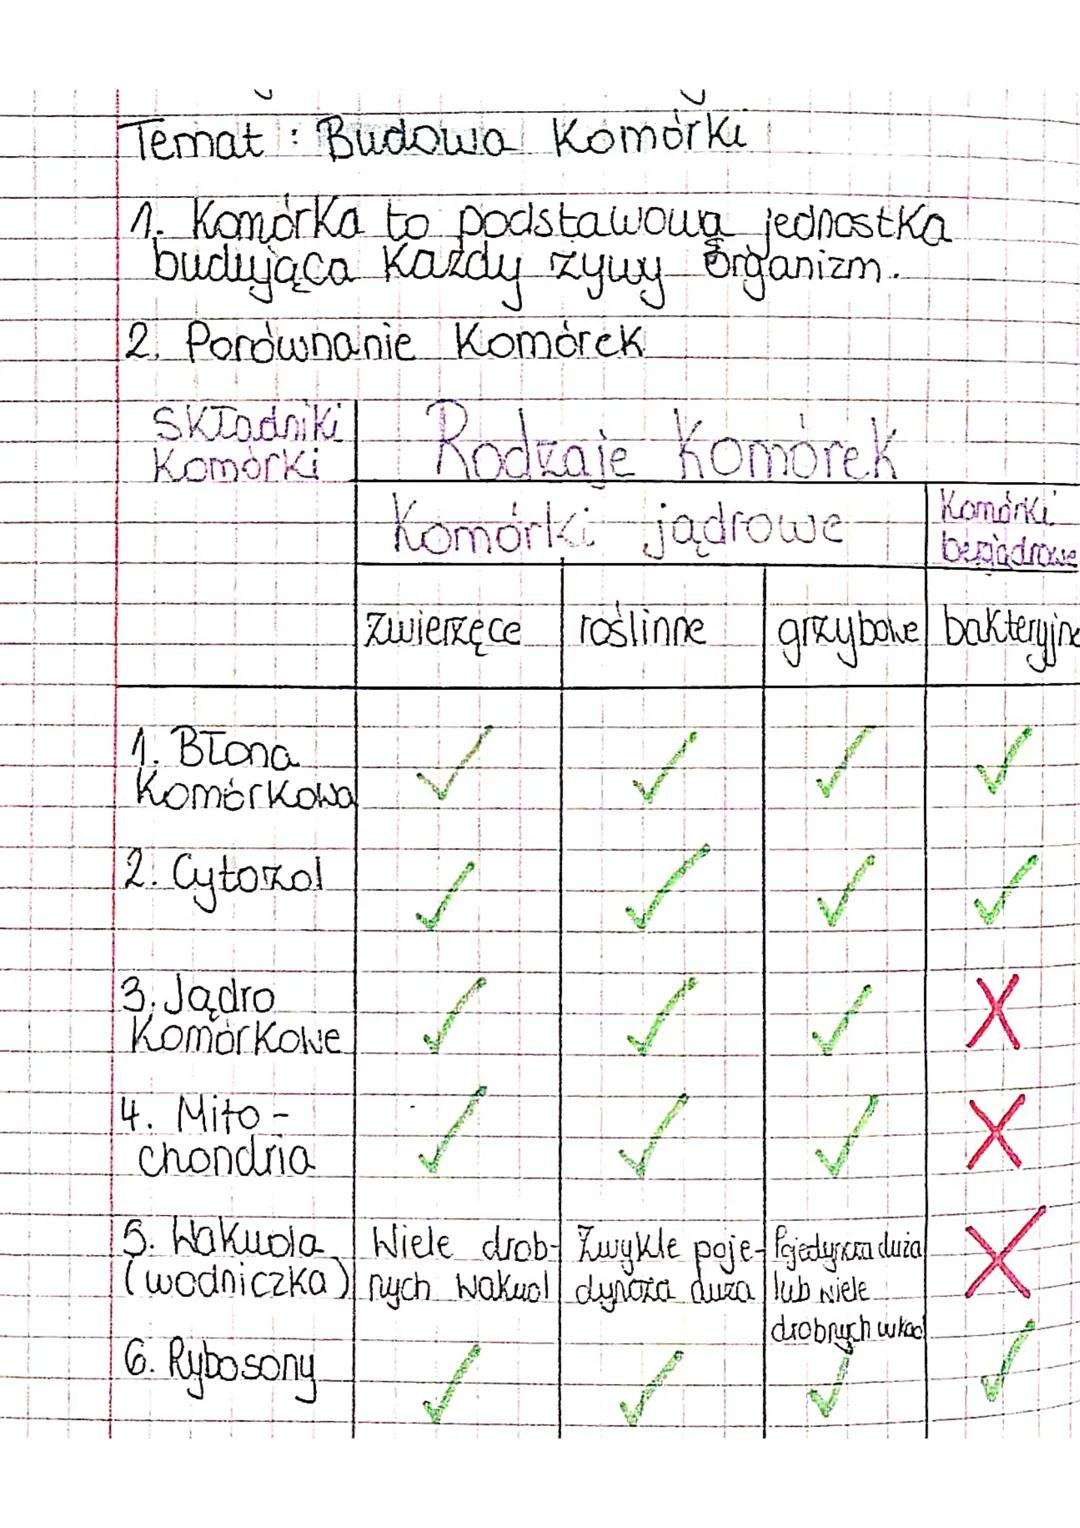 Temat: Budowa Komórki
1. Komórka to podstawowa jednostka
budująca Każdy żywy organizm.
2. Porównanie Komórek
Składniki
Komórki
Rodzaje Komórek
Komórki jądrowe
Komórki
bezjądrowe
zwierzęce roślinne grzybowe bakteryjne
1. Błona
Komórkowa
✓ ✓ ✓ ✓
2. Cytozol ✓ ✓ ✓ ✓
3. Jądro
Komórkowe
✓ ✓ ✓ X
4. Mito-
chondria
✓ ✓ ✓ X
5. Wakuola
(wodniczka)
Wiele drob-
nych wakuol
Zwykle poje-
dyncza duża
Pojedyncza duża
lub wiele
drobnych wkuol
X
6. Rybosony ✓ ✓ ✓ ✓